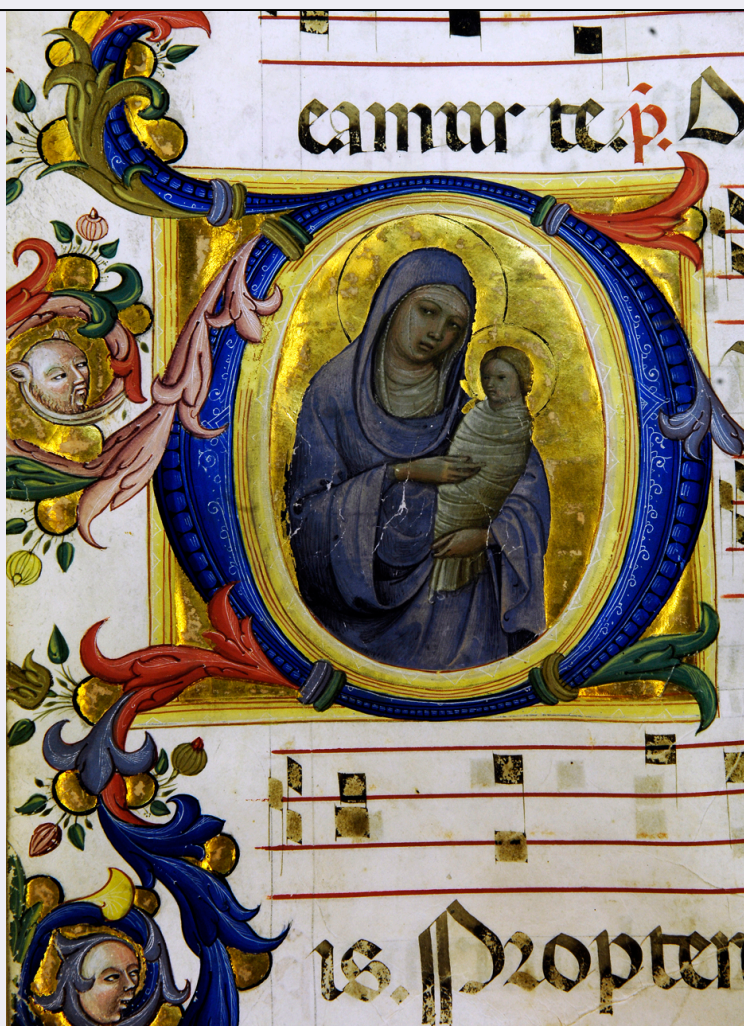 eamur te. p. D
is. Propter